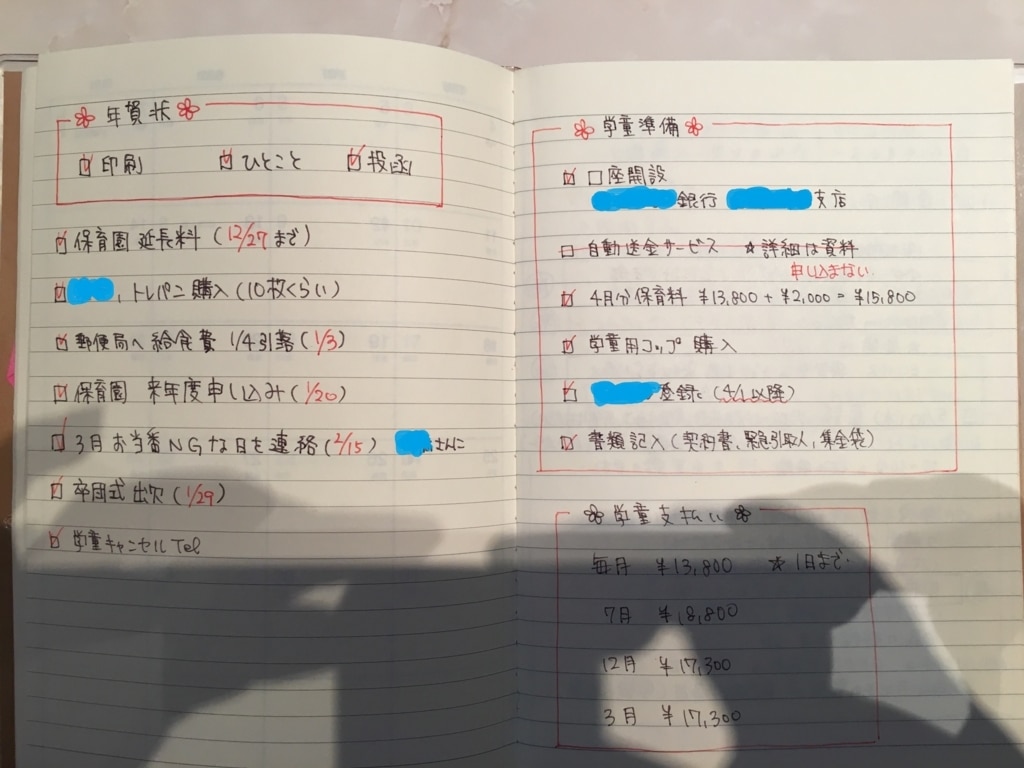 年賀状
☑印刷 ☑ひとこと ☑投函
☑保育園 延長料 (12/27まで)
☑、トレパン購入 (10枚くらい)
☑郵便局へ 給食費 1/4引落 (1/3)
☑保育園 来年度申し込み (1/20)
☑3月お当番NGな日を連絡 (2/15) さんに
☑卒園式出欠 (1/29)
☑学童キャンセルTel
学童準備
☑口座開設
銀行 支店
□自動送金サービス ☆詳細は資料
申し込まない
☑4月分保育料 ¥13,800 + ¥2,000 = ¥15,800
☑学童用コップ購入
☑登録 (4/1以降)
☑書類記入 (契約書、緊急引取人、集金袋)
学童支払い
毎月 ¥13,800 ☆1日まで
7月 ¥18,800
12月 ¥17,300
3月 ¥17,300